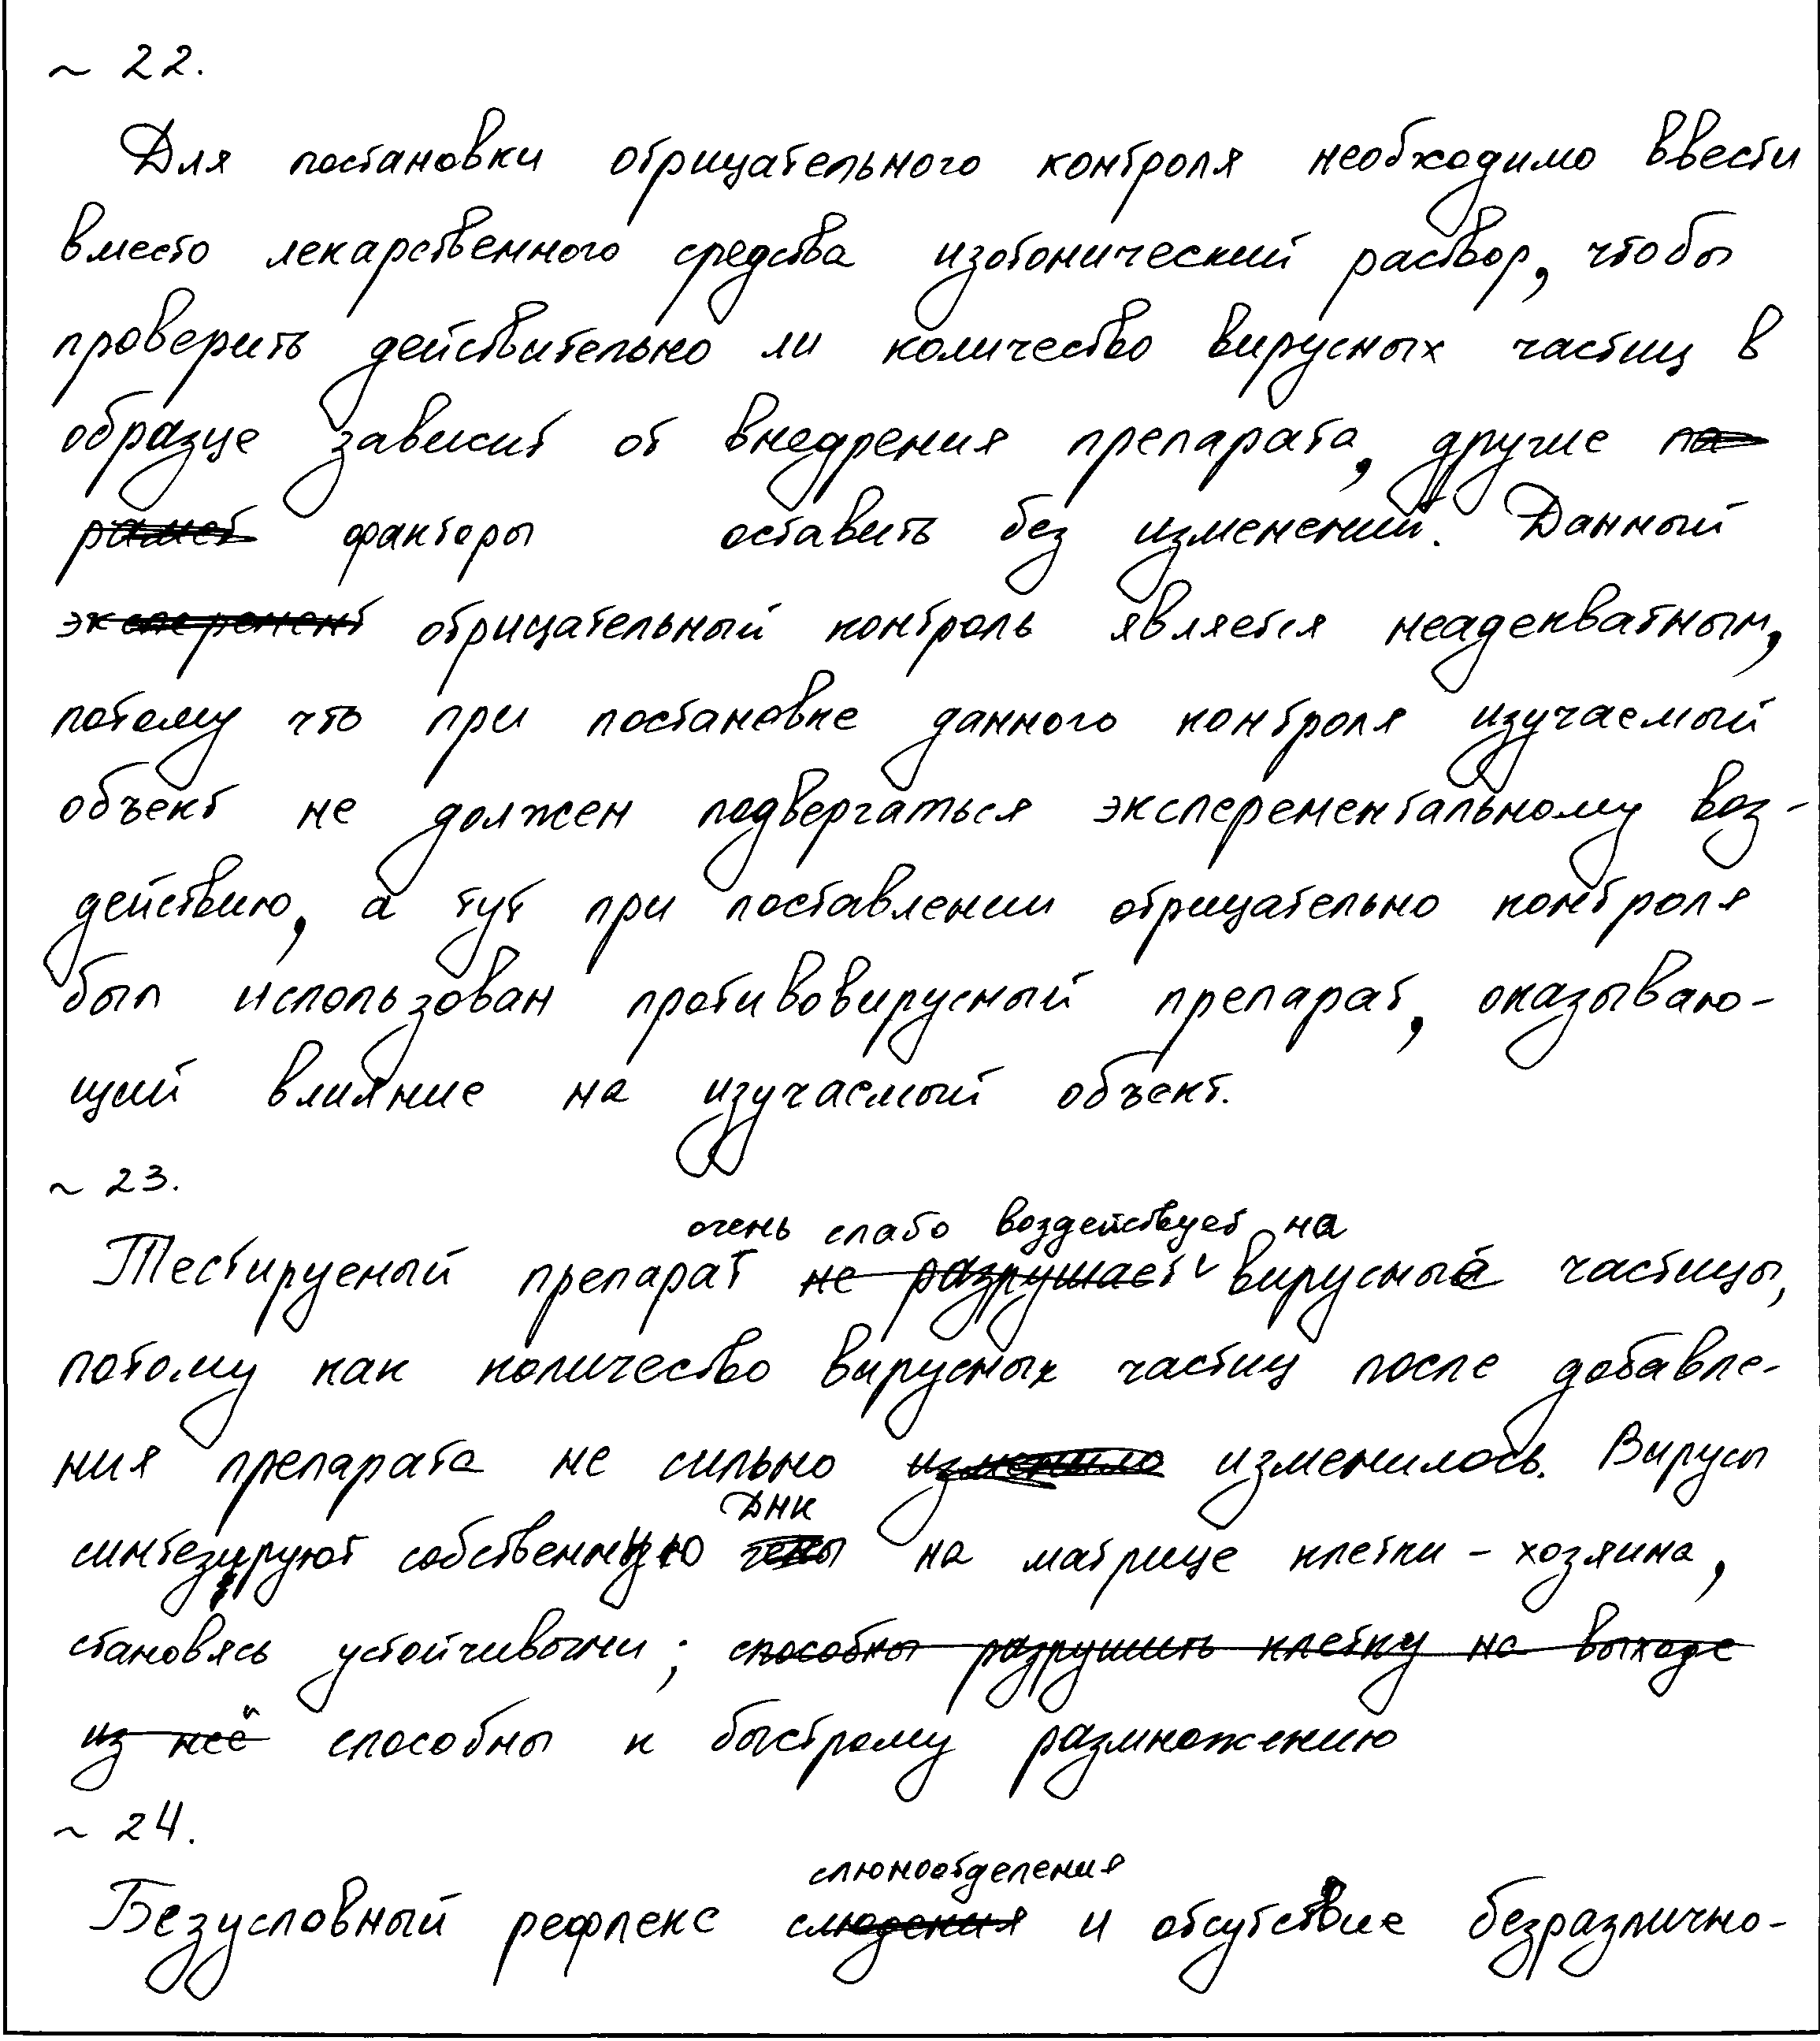 ~ 22.
Для постановки отрицательного контроля необходимо ввести
вместо лекарственного средства изотонический раствор, чтобы
проверить действительно ли количество вирусных частиц в
образце зависит от внедрения препарата, другие па-
рамет факторы оставить без изменений. Данный
эксперемент отрицательный контроль является неадекватным,
потому что при постановке данного контроля изучаемый
объект не должен подвергаться эксперементальному воз-
действию, а тут при поставлении отрицательно контроля
был использован противовирусный препарат, оказываю-
щий влияние на изучаемый объект.
~ 23.
очень слабо воздействует на
Тестируемый препарат не разрушает вирусные частицы,
потому как количество вирусных частиц после добавле-
ния препарата не сильно изменило изменилось. Вирусы
ДНК
синтезируют собственную гены на матрице клетки - хозяина,
становясь устойчивыми; способны разрушить клетку на выходе
из неё способны к быстрому размножению
~ 24.
слюноотделения
Безусловный рефлекс и отсутствие безразлично-